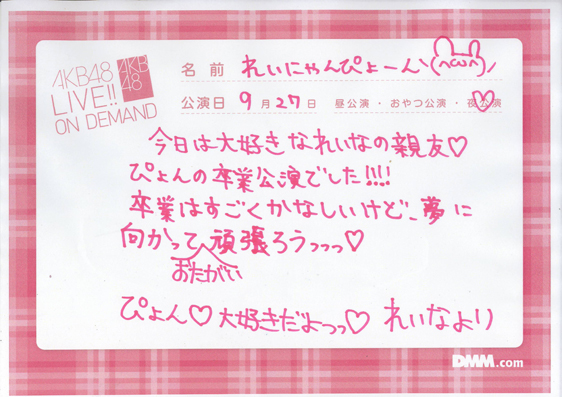 AKB48
LIVE!!
ON DEMAND
AKB
48
名前 れいにゃんぴょーん
公演日 9月27日 昼公演・おやつ公演・夜公演
今日は大好きなれいなの親友♡
ぴょんの卒業公演でした!!!!
卒業はすごくかなしいけど、夢に
向かって頑張ろうっっっ♡
おたがい
ぴょん♡大好きだよっっ♡ れいなより
DMM.com